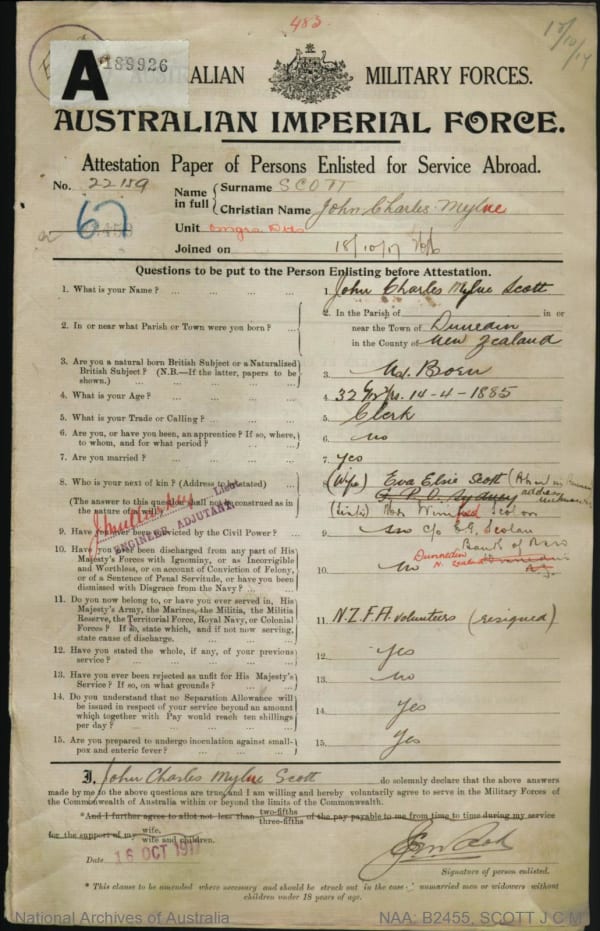 483
18/10/17
A 189926
AUSTRALIAN MILITARY FORCES.
AUSTRALIAN IMPERIAL FORCE.
Attestation Paper of Persons Enlisted for Service Abroad.
No. 22159
Name in full { Surname SCOTT
Christian Name John Charles Mylne
62
Unit Engrs
Joined on 18/10/17
Questions to be put to the Person Enlisting before Attestation.
1. What is your Name? ... ... ... ... 1. John Charles Mylne Scott
2. In or near what Parish or Town were you born? ... 2. In the Parish of in or
near the Town of Dunedin
in the County of New Zealand
3. Are you a natural born British Subject or a Naturalized
British Subject? (N.B.—If the latter, papers to be
shown.) ... ... ... ... 3. Nat. Born
4. What is your Age? ... ... ... ... 4. 32 14-4-1885
5. What is your Trade or Calling? ... ... ... 5. Clerk
6. Are you, or have you been, an apprentice? If so, where,
to whom, and for what period? ... ... ... 6. no
7. Are you married? ... ... ... ... 7. yes
8. Who is your next of kin? (Address to be stated) ... (Wife) Eva Elsie Scott
G.P.O. Sydney address
(The answer to this question shall not be construed as in
the nature of a will.)
Lieut.
ENGINEER ADJUTANT
9. Have you ever been convicted by the Civil Power? ... 9. no c/o
Bank of
Dunnedin
N. Zealand
10. Have you ever been discharged from any part of His
Majesty's Forces with Ignominy, or as Incorrigible
and Worthless, or on account of Conviction of Felony,
or of a Sentence of Penal Servitude, or have you been
dismissed with Disgrace from the Navy? ... ... 10. no
11. Do you now belong to, or have you ever served in, His
Majesty's Army, the Marines, the Militia, the Militia
Reserve, the Territorial Force, Royal Navy, or Colonial
Forces? If so, state which, and if not now serving,
state cause of discharge. 11. N.Z.F.A. Volunteers (resigned)
12. Have you stated the whole, if any, of your previous
service? ... ... ... ... 12. yes
13. Have you ever been rejected as unfit for His Majesty's
Service? If so, on what grounds? ... ... 13. no
14. Do you understand that no Separation Allowance will
be issued in respect of your service beyond an amount
which together with Pay would reach ten shillings
per day? ... ... ... ... 14. Yes
15. Are you prepared to undergo inoculation against small-
pox and enteric fever? ... ... ... 15. Yes
I, John Charles Mylne Scott do solemnly declare that the above answers
made by me to the above questions are true, and I am willing and hereby voluntarily agree to serve in the Military Forces of
the Commonwealth of Australia within or beyond the limits of the Commonwealth.
*And I further agree to allot not less than two-fifths three-fifths of the pay payable to me from time to time during my service
for the support of my wife. wife and children.
Date 16 OCT 1917
Signature of person enlisted.
* This clause to be amended where necessary and should be struck out in the case of unmarried men or widowers without
children under 18 years of age.
National Archives of Australia NAA: B2455, SCOTT J C M